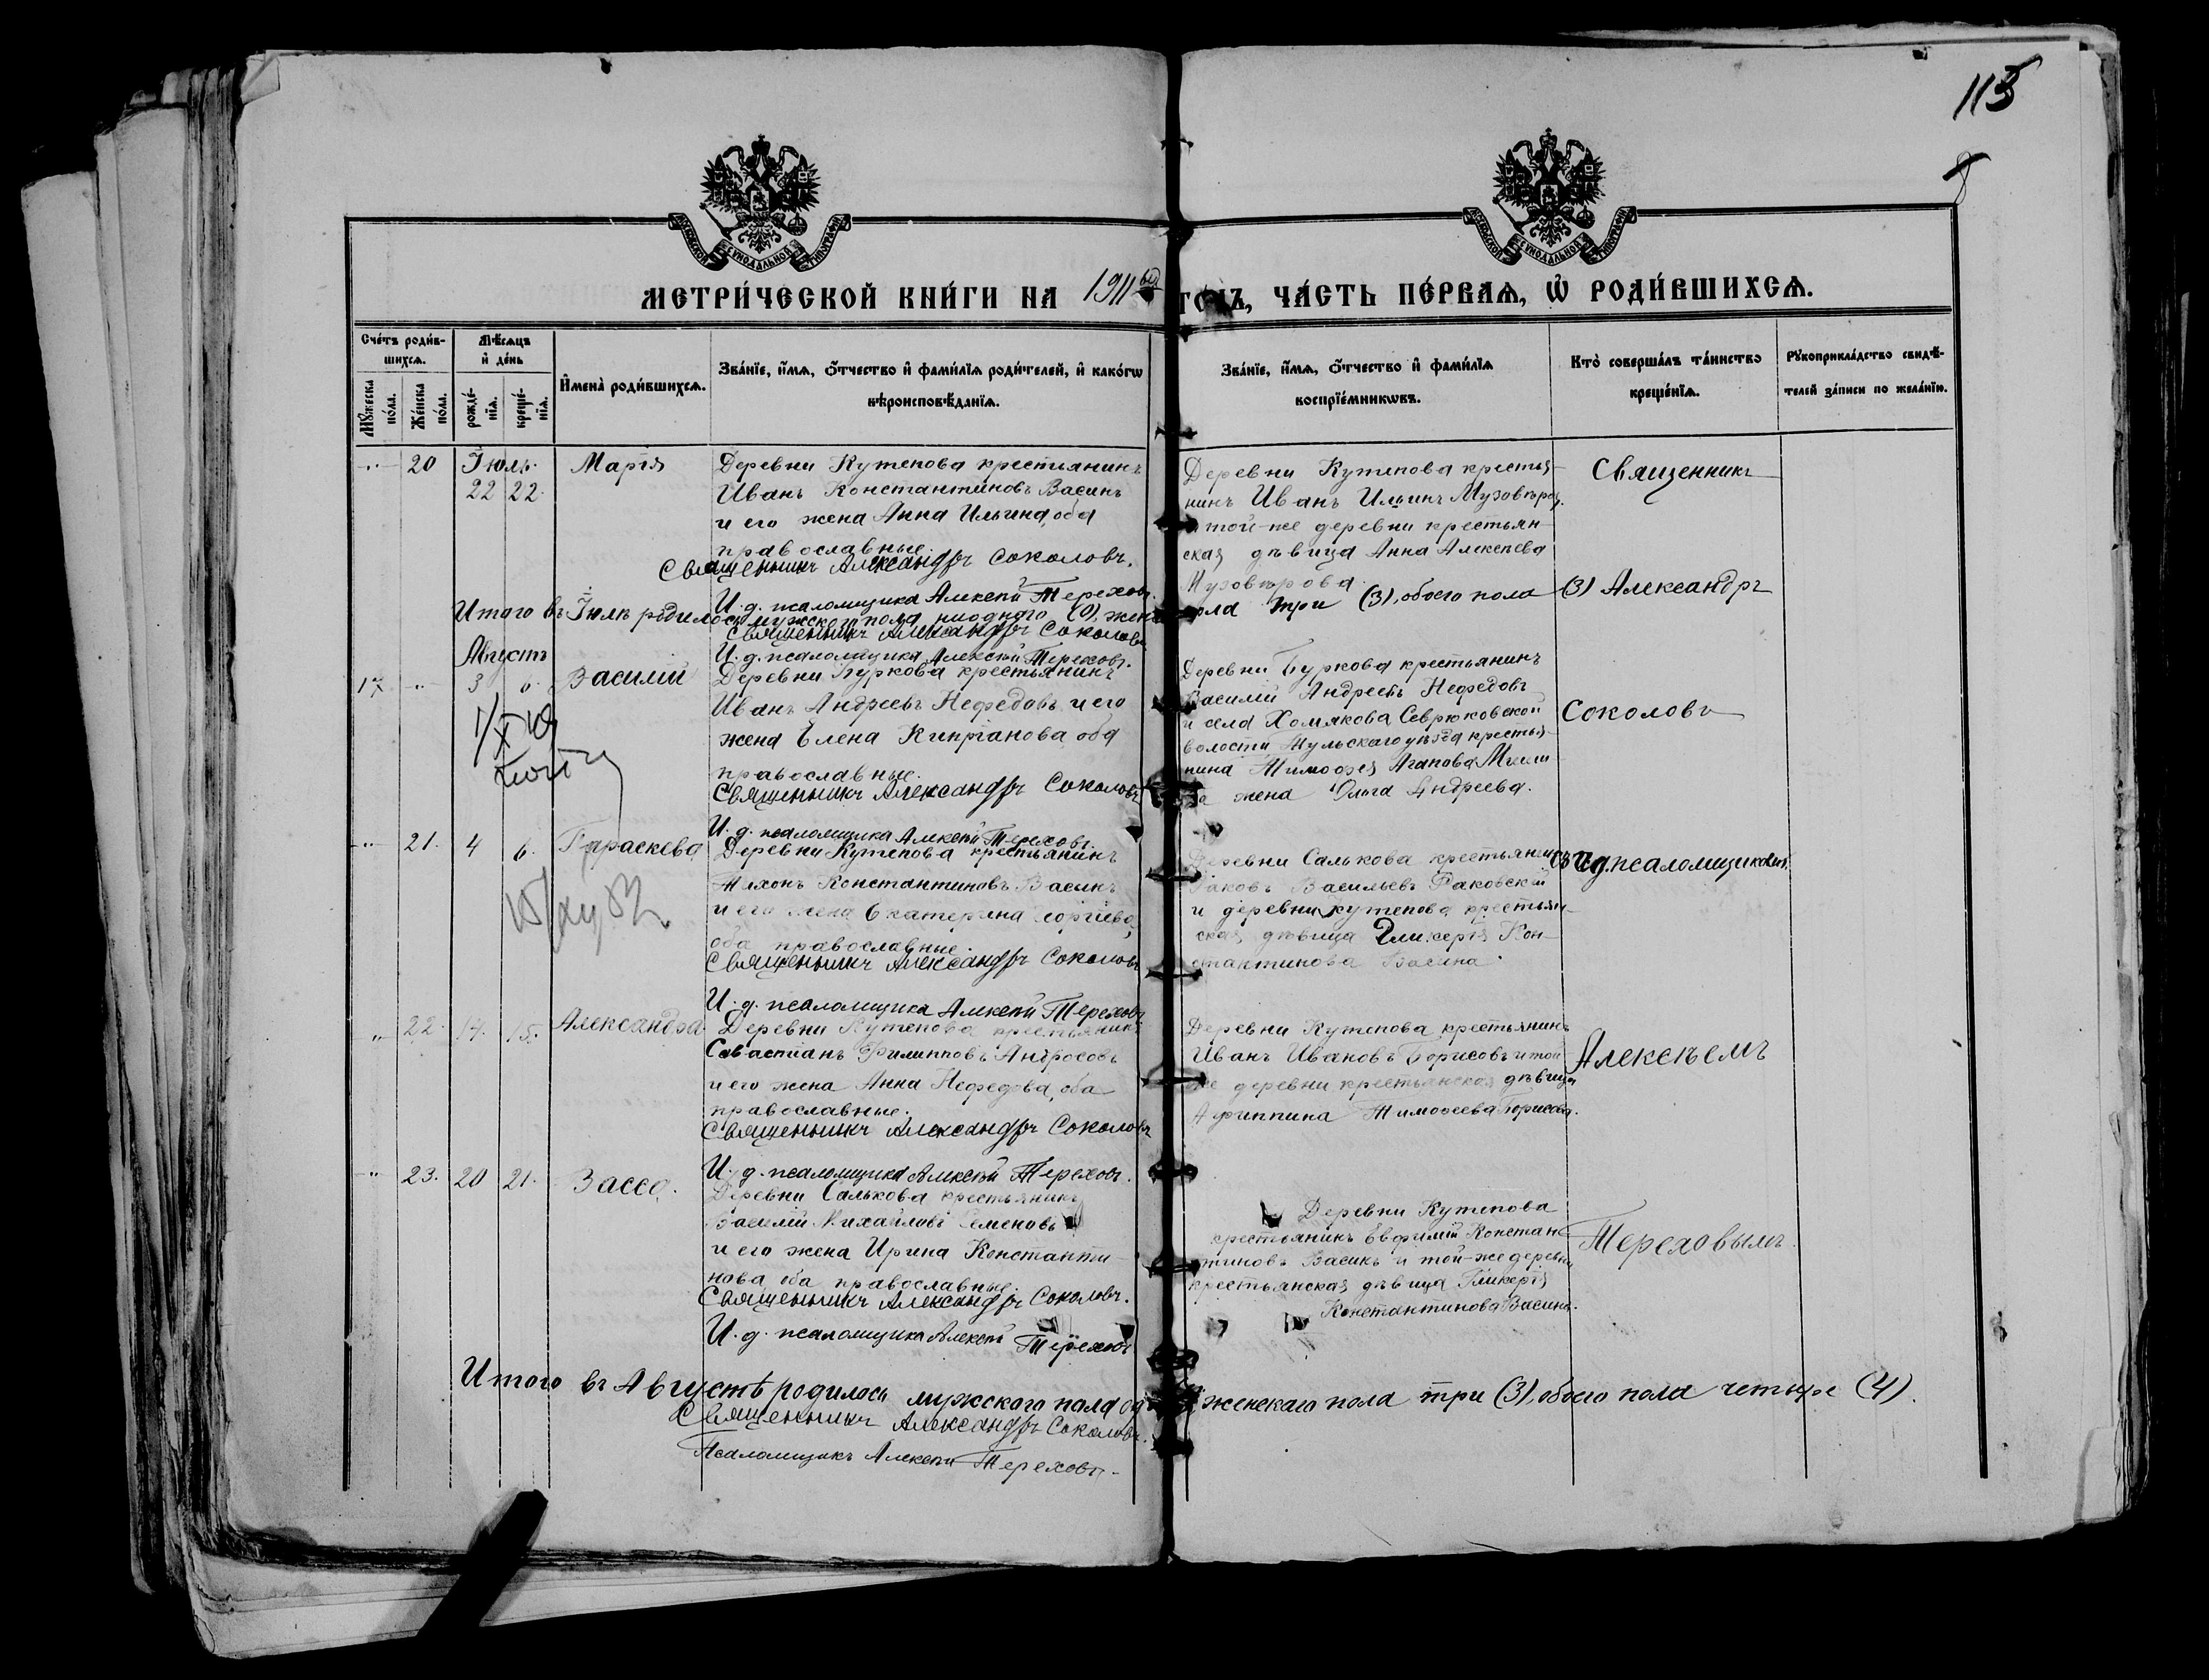 115
МЕТРИ́ЧЕСКОЙ КНИ́ГИ НА 1911ый ГОДЪ, ЧА́СТЬ ПЕ́РВАѦ, Ѡ҆ РОДИ́ВШИХСѦ.
Сче́тъ роди́в-
шихсѧ.
Мꙋ́жеска по́ла.
Же́нска по́ла.
Мѣ́сѧцъ
и҆ де́нь
рожде́-
нїѧ.
креще́-
нїѧ.
И҆мена̀ роди́вшихсѧ.
Зва́нїе, и҆́мѧ, ѻ҆́тчество и҆ фами́лїѧ роди́телей, и҆ како́гѡ
вѣроисповѣ́данїѧ.
Зва́нїе, и҆́мѧ, ѻ҆́тчество и҆ фами́лїѧ
воспрїе́мникѡвъ.
Кто̀ соверша́лъ та́инство
креще́нїѧ.
Рꙋкоприкла́дство свидѣ́-
телей за́писи по жела́нїю.
20
Іюль.
22 22.
Марія
Деревни Кутепова крестьянинъ
Иванъ Константиновъ Васинъ
и его жена Анна Ильина, оба
православные.
Священникъ Александръ Соколовъ.
И. д. псаломщика Алексѣй Тереховъ.
Деревни Кутепова крестья-
нинъ Иванъ Ильинъ
и той-же деревни крестьян-
ская дѣвица Анна Алексѣева
Священникъ
Итого въ Іюлѣ родилось мужского пола ниодного (0), женскаго пола три (3), обоего пола (3)
Священникъ Александръ Соколовъ
И. д. псаломщика Алексѣй Тереховъ.
Александръ
Августъ
17 " 3 6. Василій
Деревни Буркова крестьянинъ
Иванъ Андреевъ Нефедовъ и его
жена Елена Кипріанова оба
православные.
Священникъ Александръ Соколовъ
И. д. псаломщика Алексѣй Тереховъ.
Деревни Буркова крестьянинъ
Василій Андреевъ Нефедовъ
и села Хомякова Севрюковской
волости Тульскаго уѣзда крестья-
нина Тимофея Агапова
жена Ольга Андреева.
Соколовъ
" 21. 4 6. Параскева
Деревни Кутепова крестьянинъ
Тихонъ Константиновъ Васинъ
и его жена Екатерина Георгіева,
оба православные.
Священникъ Александръ Соколовъ
И. д. псаломщика Алексѣй Тереховъ
Деревни Салькова крестьянинъ
Іаковъ Васильевъ Раковскій
и деревни Кутепова крестьян-
ская дѣвица Гликерія Кон-
стантинова Васина.
съ и.д. псаломщикомъ
" 22. 14. 15. Александра
Деревни Кутепова крестьянинъ
Севастіанъ Филипповъ Антросовъ
и его жена Анна Нефедова, оба
православные.
Священникъ Александръ Соколовъ
И. д. псаломщика Алексѣй Тереховъ.
Деревни Кутепова крестьянинъ
Иванъ Ивановъ Борисовъ и той
же деревни крестьянская дѣвица
Агриппина Тимофеева Борисова.
Алексѣемъ
" 23. 20 21. Васса.
Деревни Салькова крестьянинъ
Василій Михайловъ Семеновъ
и его жена Ирина Константи-
нова оба православные.
Священникъ Александръ Соколовъ.
И. д. псаломщика Алексѣй Тереховъ
Деревни Кутепова
крестьянинъ Евфимій Констан-
тиновъ Васинъ и той-же деревни
крестьянская дѣвица Гликерія
Константинова Васина.
Тереховымъ.
Итого въ Августѣ родилось мужского пола женскаго пола три (3), обоего пола четыре (4).
Священникъ Александръ Соколовъ.
Псаломщикъ Алексѣй Тереховъ.